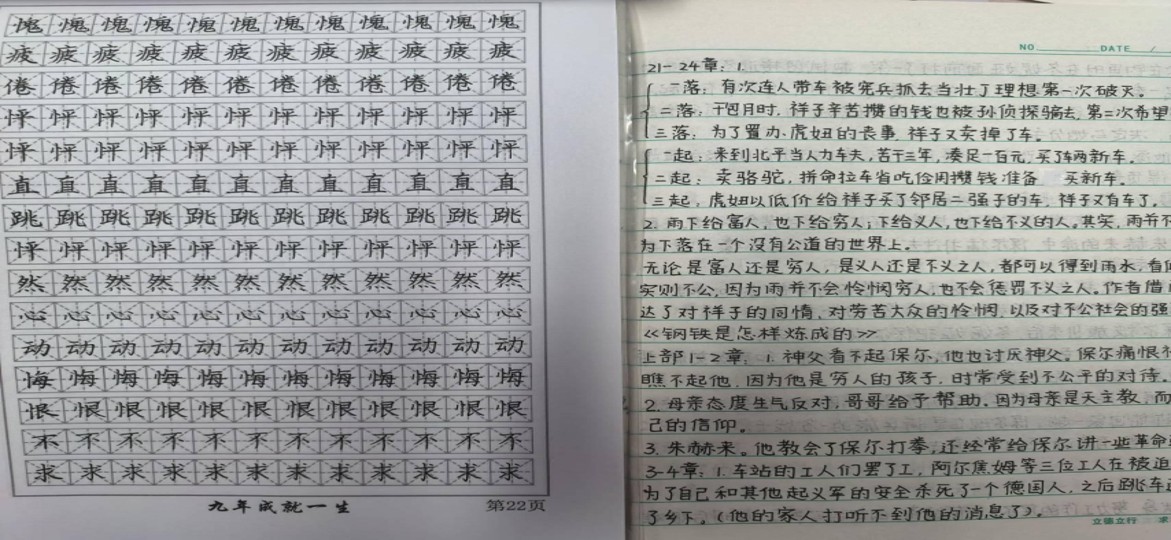 愧愧愧愧愧愧愧愧愧愧愧愧
疲疲疲疲疲疲疲疲疲疲疲疲
倦倦倦倦倦倦倦倦倦倦倦倦
怦怦怦怦怦怦怦怦怦怦怦怦
怦怦怦怦怦怦怦怦怦怦怦怦
直直直直直直直直直直直直
跳跳跳跳跳跳跳跳跳跳跳跳
怦怦怦怦怦怦怦怦怦怦怦怦
然然然然然然然然然然然然
心心心心心心心心心心心心
动动动动动动动动动动动动
悔悔悔悔悔悔悔悔悔悔悔悔
恨恨恨恨恨恨恨恨恨恨恨恨
不不不不不不不不不不不不
求求求求求求求求求求求求
九年成就一生 第22页
NO DATE /
21-24章：1.
一落：有次连人带车被宪兵抓去当壮丁理想第一次破灭。
二落：干包月时，祥子辛苦攒的钱也被孙侦探骗去，第二次希望
三落：为了置办虎妞的丧事，祥子又卖掉了车。
一起：来到北平当人力车夫，苦干三年，凑足一百元，买了辆新车。
二起：卖骆驼，拼命拉车省吃俭用攒钱准备 买新车。
三起：虎妞以低价给祥子买了邻居二强子的车，祥子又有车了。
2. 雨下给富人，也下给穷人；下给义人，也下给不义的人。其实，雨并不
为下落在一个没有公道的世界上。
无论是富人还是穷人，是义人还是不义之人，都可以得到雨水，看似
实则不公，因为雨并不会怜悯穷人，也不会惩罚不义之人。作者借
达了对祥子的同情，对劳苦大众的怜悯，以及对不公社会的强
《钢铁是怎样炼成的》
上部1-2章：1. 神父看不起保尔，他也讨厌神父。保尔痛恨神
瞧不起他，因为他是穷人的孩子，时常受到不公平的对待。
2. 母亲态度生气反对，哥哥给予帮助。因为母亲是天主教，而
己的信仰。
3. 朱赫来。他教会了保尔打拳，还经常给保尔讲一些革命
3-4章：1. 车站的工人们罢了工，阿尔焦姆等三位工人在被迫
为了自己和其他起义军的安全杀死了一个德国人，之后跳车
了乡下。（他的家人打听不到他的消息了）。
立德立行 求